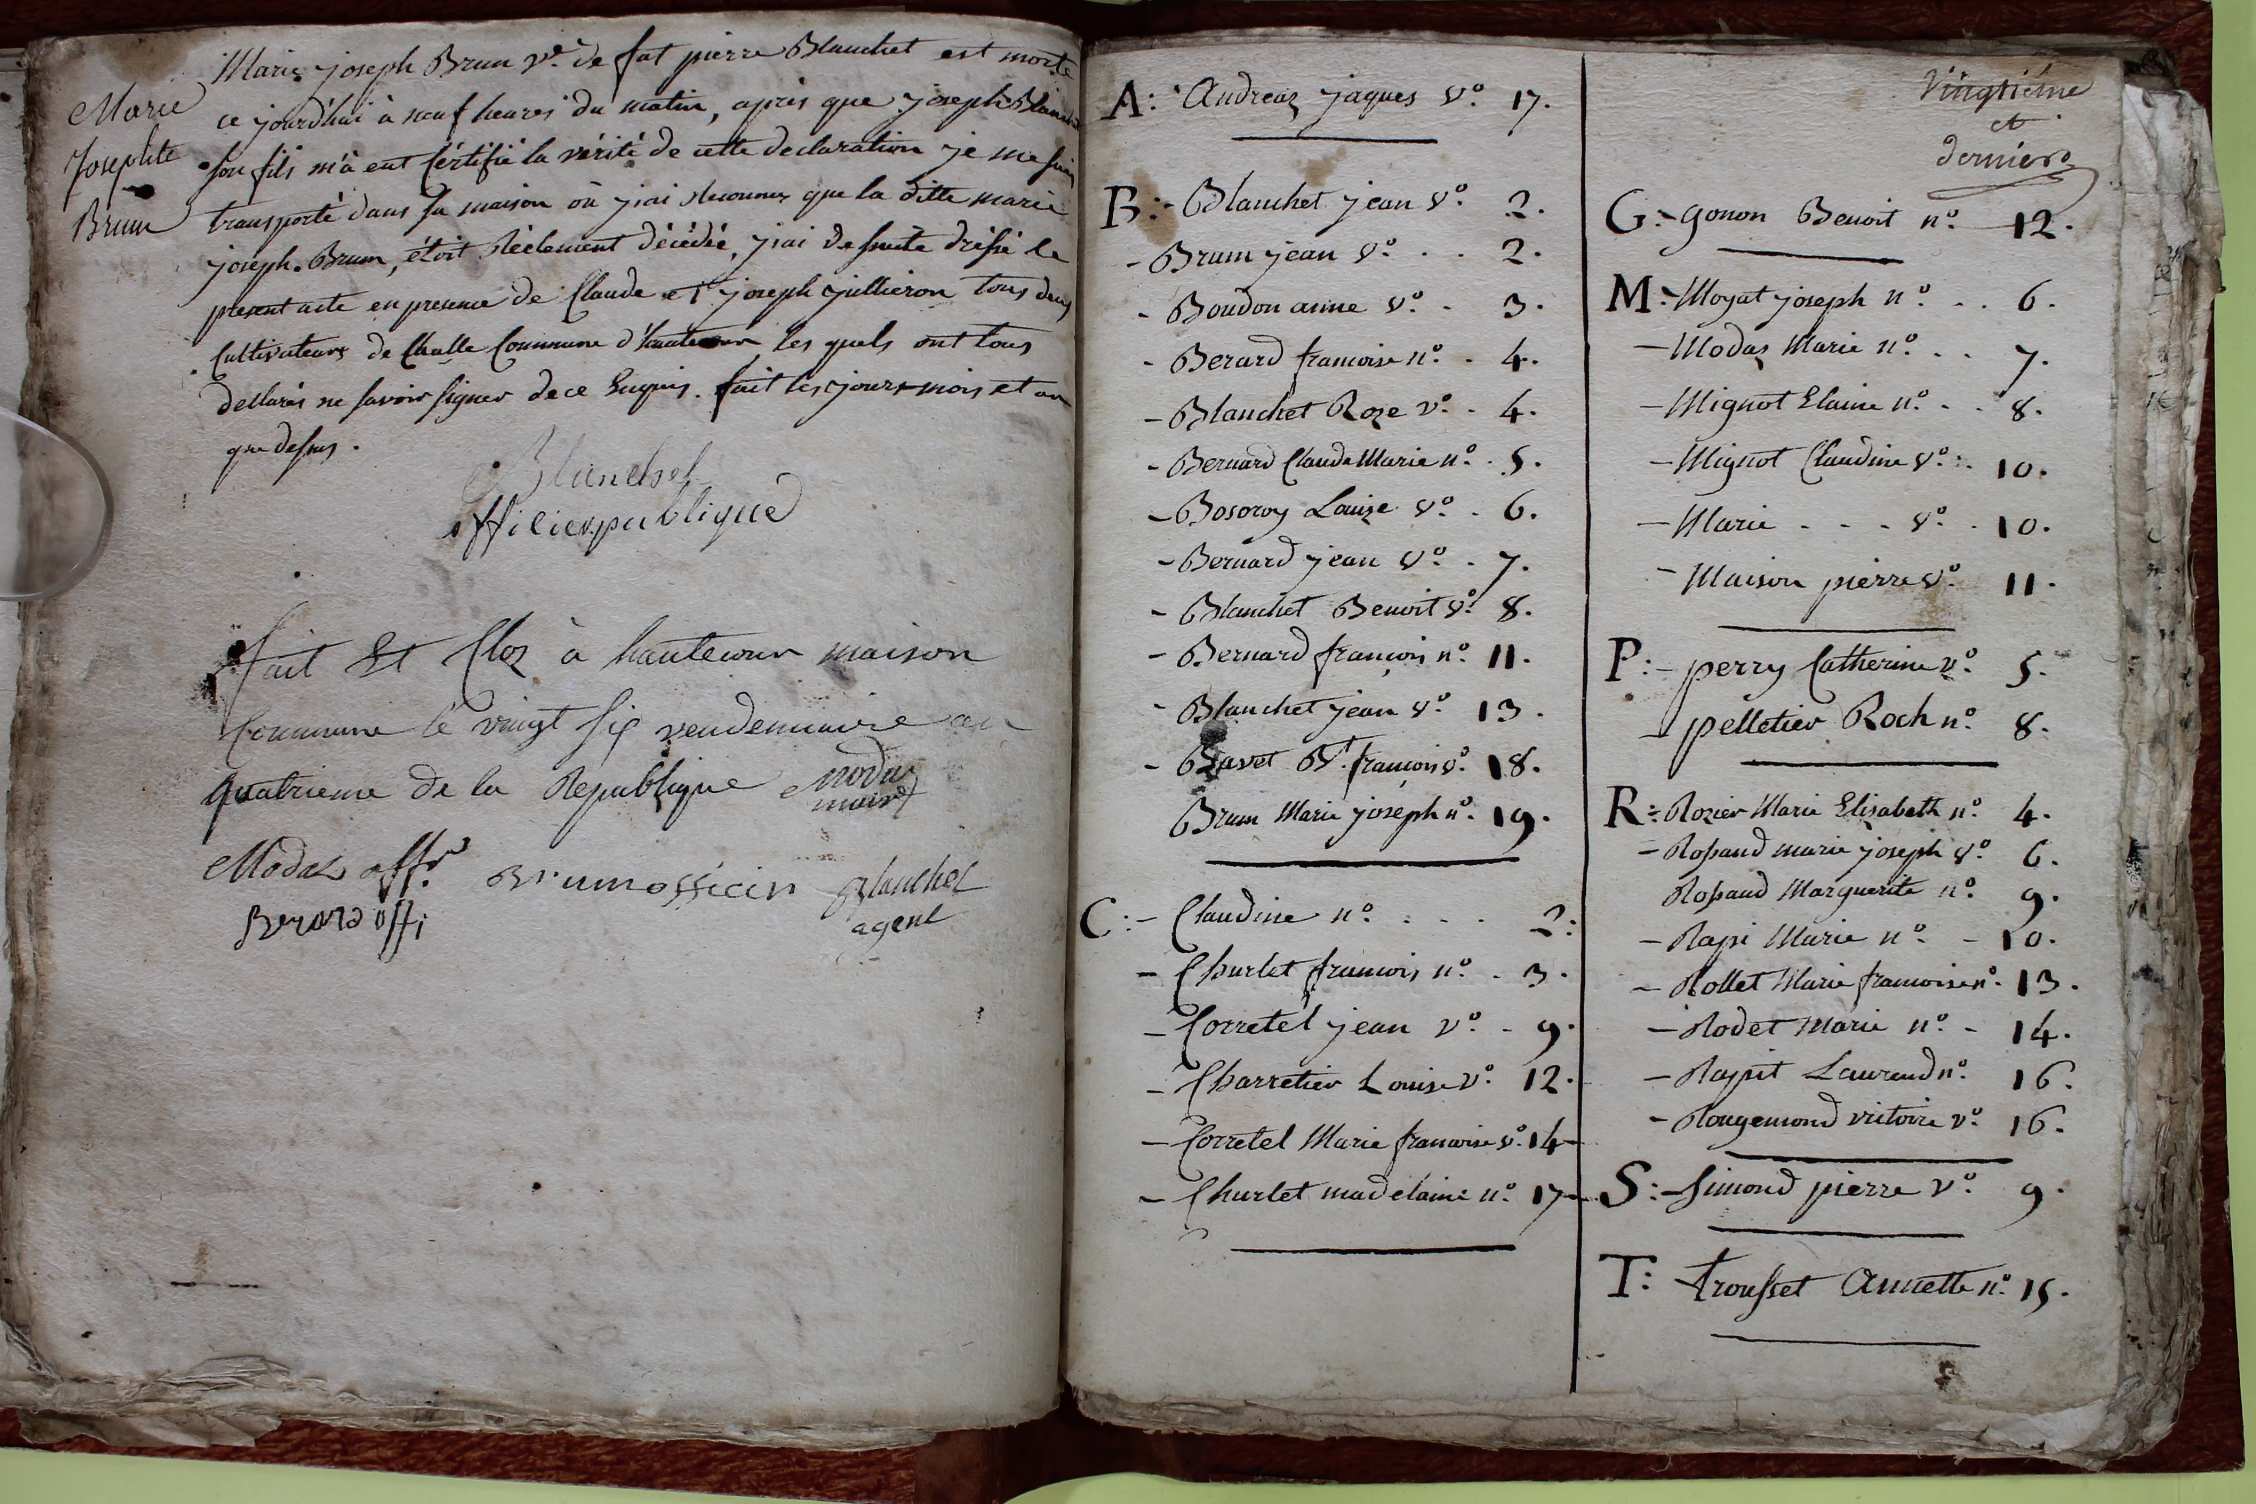 Marie
Josephte
Brun
Marie joseph Brun vᵉ de fut pierre Blanchet est morte
ce jourd'hui à neuf heures du matin, après que joseph Blanchet
son fils m'à eut certifié la vérité de cette declaration je me suis
transporté dans sa maison où j'iai reconnus que la ditte marie
joseph Brun, étoit réelement décédée, j'iai de suite dréssé le
present acte en presence de Claude et joseph jullieron tous deux
Cultivateurs de Challe Commune d'hautecour les quels ont tous
dellarés ne savoir signer de ce Enquis. fait les jours mois et an
que dessus.
Blanchet
officier publique
fait Et Cloz à hautecour maison
Commune le vingt six vendemiaire an
quatrieme de la Republique modas
maire
Modas offʳ. Brun officier Blanchet
agent
Berard offi
Vingtiéme
et
dernier
A: Andreaz jaques vº. 17.
B: - Blanchet jean vº. 2.
- Brum jean vº. . . 2.
- Boudon anne vº. - 3.
- Berard francoise nº. - 4.
- Blanchet Roze vº. - 4.
- Bernard Claude Marie nº. - 5.
- Bosoroy Louize vº. - 6.
- Bernard jean vº. - 7.
- Blanchet Benoit vº. 8.
- Bernard françois nº. 11.
- Blanchet jean vº. 13.
- Bavet Bᵗ. francois vº. 18.
Brum Marie joséph nº. 19.
C: - Claudine nº. . . . 2:
- Churlet francois nº. - 3.
- Corretel jean vº. - 9.
- Charretier Louise vº. 12.
- Corretel Marie francoise vº. 14
- Churlet madelaine nº. 17
G: - gonon Benoit nº. 12.
M: - Moyat joseph nº. . . 6.
- Modas Marie nº. . . 7.
- Mignot Elaine nº. . . 8.
- Mignot Claudine vº. . 10.
- Marie . . . vº. . 10.
- Maison pierre vº. 11.
P: - perry Catherine vº. 5.
- pelletier Roch nº. 8.
R: - Rozier Marie Elisabeth nº. 4.
- Rossand marie joseph vº. 6.
Rossand Marguerite nº. 9.
- Rapi Marie nº. - 10.
- Rollet Marie francoise nº. 13.
- Rodet Marie nº. - 14.
- Rappit Laurend nº. 16.
- Rougemond victoire vº. 16.
S: - simond pierre vº. 9.
T: trousset Annette nº. 15.